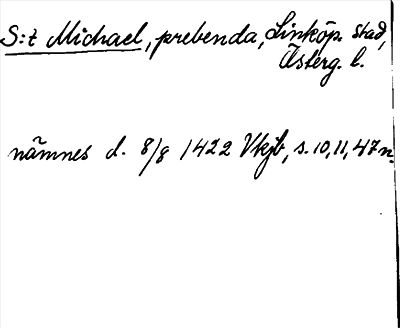 S:t Michael, prebenda, Linköp. stad,
Österg. l.
nämnes d. 8/8 1422 Vkjb, s. 10, 11, 47 n.